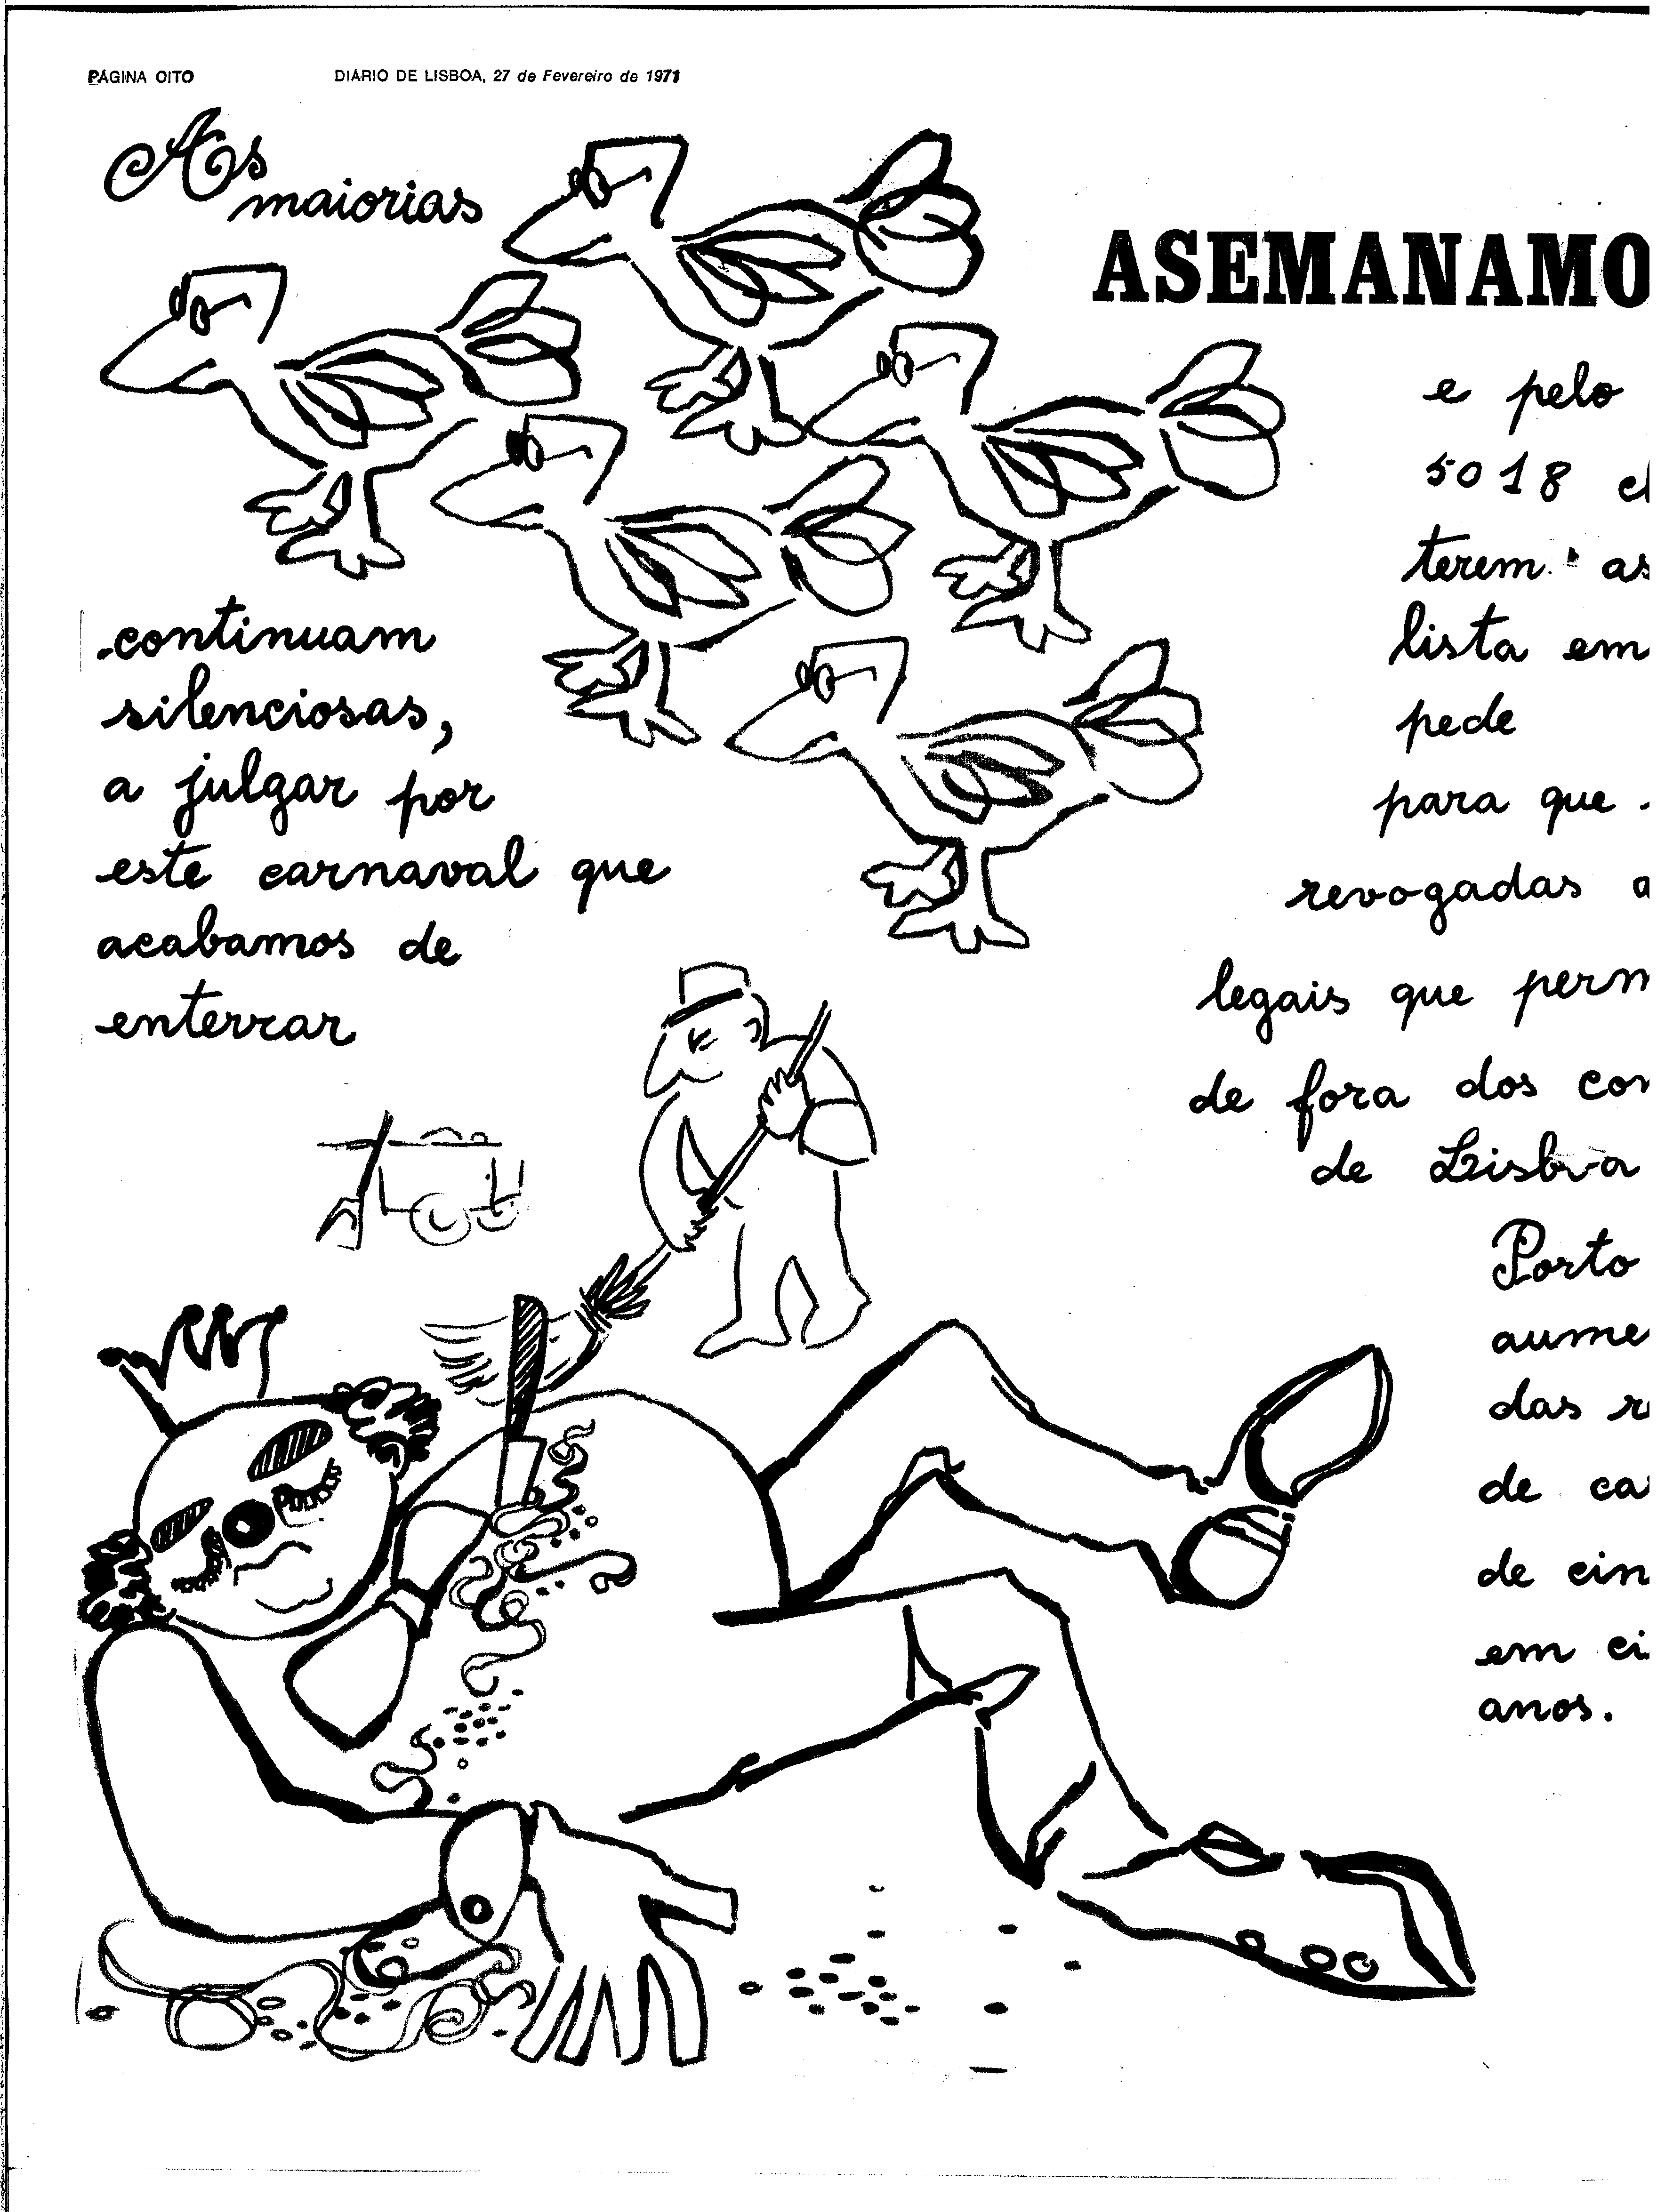 PÁGINA OITO
DIÁRIO DE LISBOA, 27 de Fevereiro de 1971
As
maiorias
continuam
silenciosas,
a julgar por
este carnaval que
acabamos de
enterrar
ASEMANAMO
e pelo
5018
terem as
lista em
pede
para que
revogadas a
legais que perm
de fora dos con
de Lisboa
Porto
aume
das
de ca
de cin
em ci
anos.